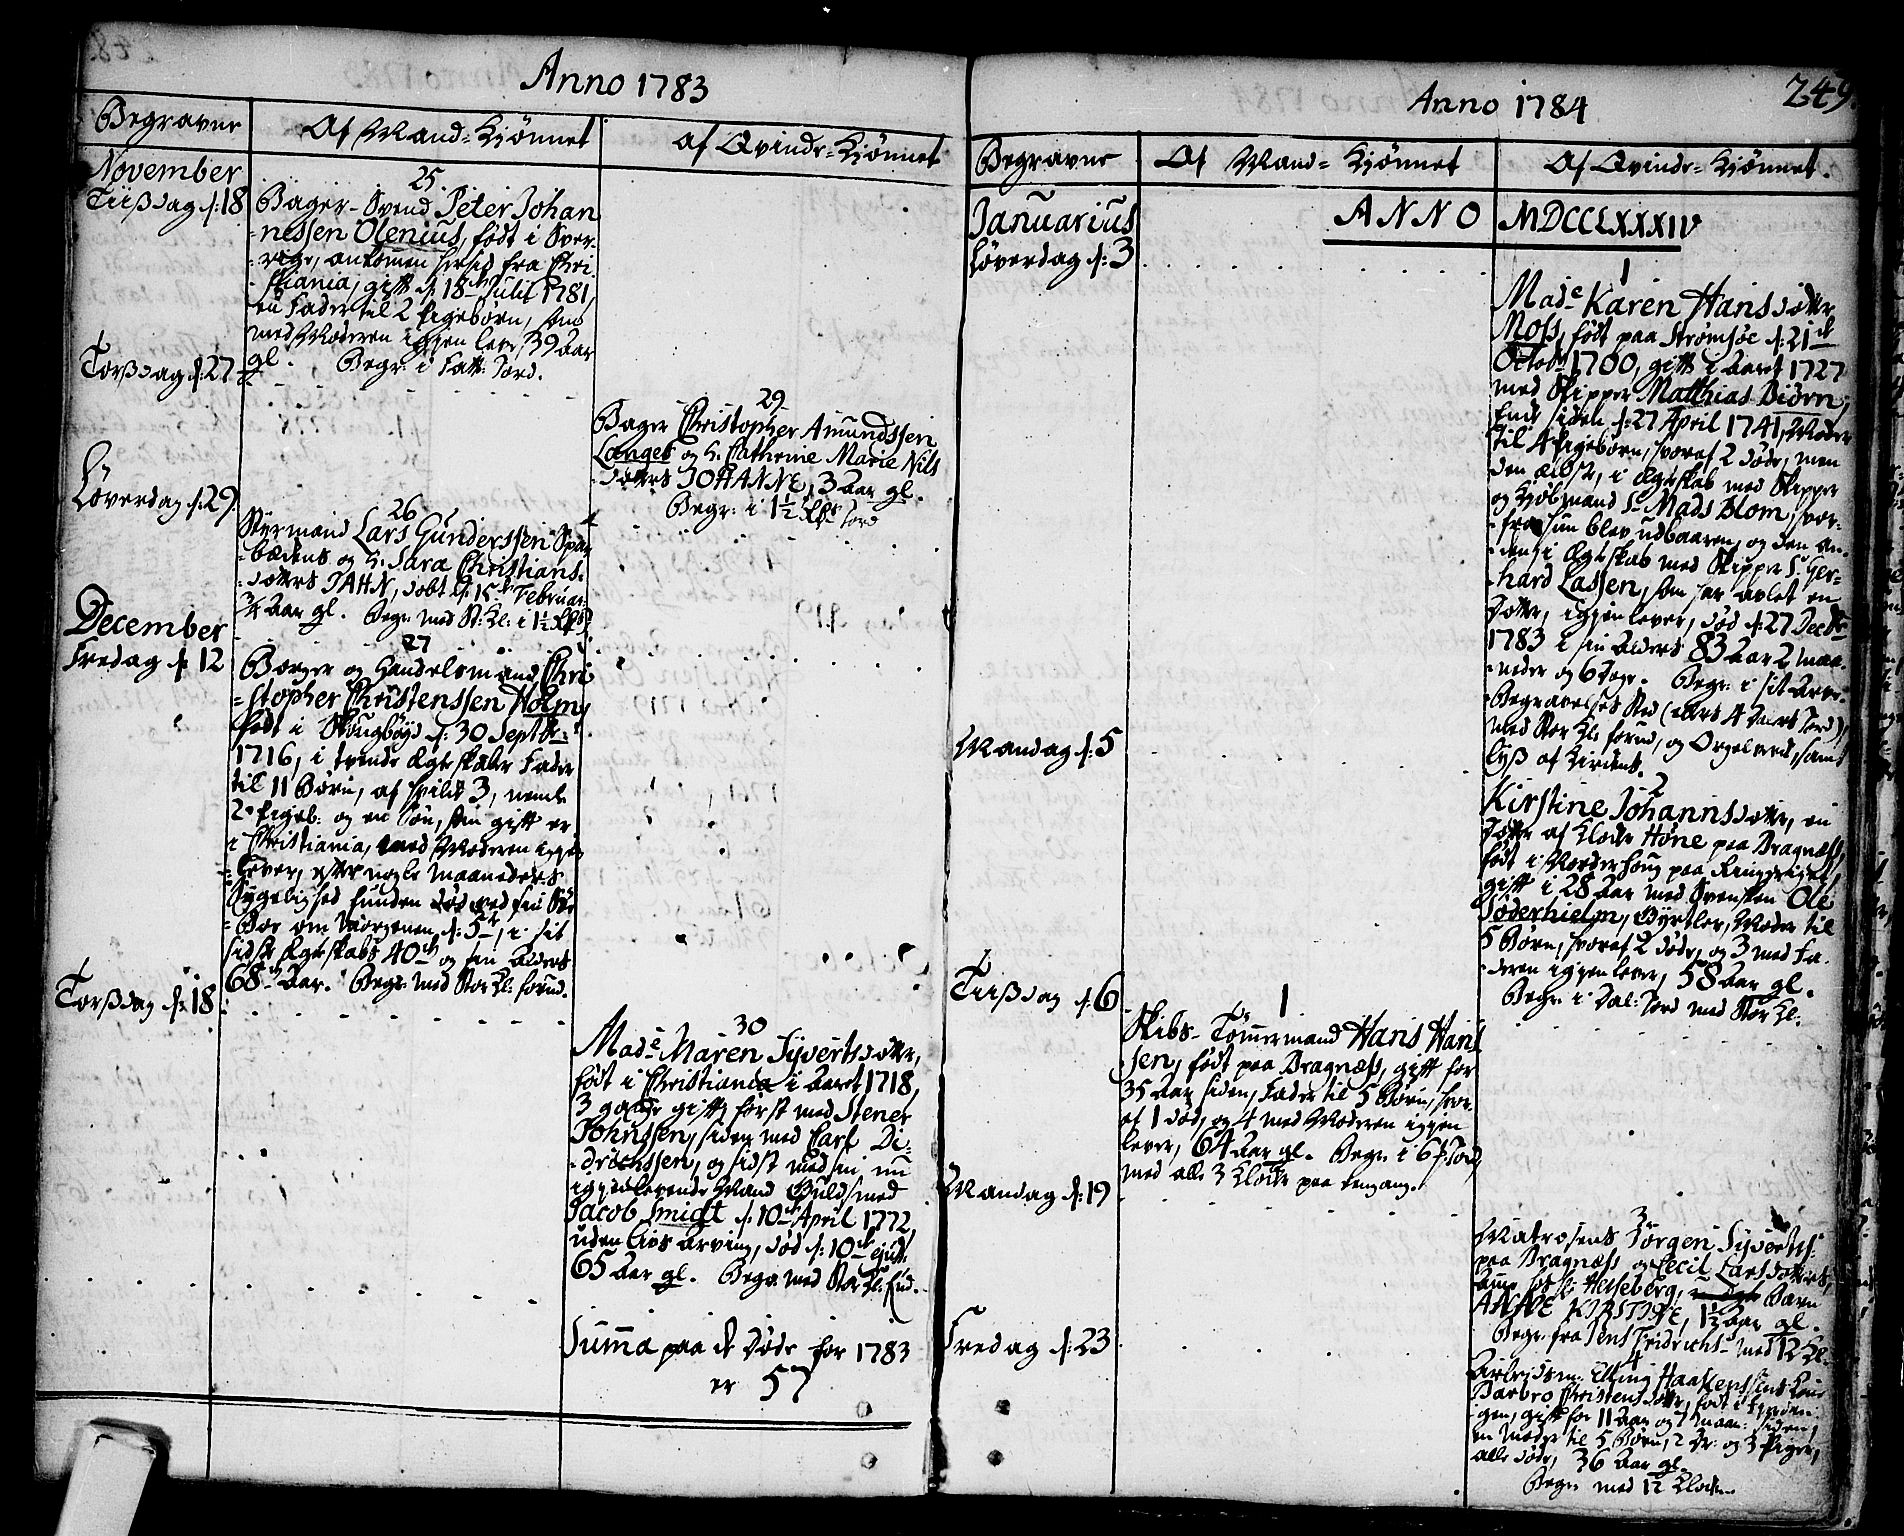 Anno 1783
Begravne
Af Mand-Kiønnet
Af Qvinde-Kiønnet
November
Tiisdag d: 18
25.
Bager-Svend Peter Johan
-nessen Olenius, født i Sver-
-rige, ankomen hersed fra Chri-
-stiania, gift d. 18de Julii 1781,
en Fader til 2 Pigebørn, som
med Moderen igien lever, 39 Aar
gl. Begr: i Fatt: Jord.
Torsdag d: 27
29
Bager Christopher Amundssen
Langes og H. Cathrine Marie Nils
-dotters JOHANNE, 3 Aar gl.
Begr: i 1½ Jord
Løverdag d: 29.
26
Styrmand Lars Gunderssen Spar
-bædens og H. Sara Christians-
-dotters JAHN, døbt d: 15de Februar:
¾ Aar gl. Begr: med St: Kl: i 1½
December
Fredag d: 12
27
Borger og Handelsmand Chri
-stopher Christenssen Holm,
født i Skougbøyd d: 30 Septbr:
1716, i tvende Ægteskaber Fader
til 11 Børn, af hvilke 3, neml:
2 Pigeb: og en Søn, som gift er
i Christiania, med Moderen igien
lever, efter nogle Maaneders
Sygelighed funden død ved sin
om Morgenen d: 5te, i sit
sidste Ægteskabs 40de og sin Alders
68de Aar. Begr: med Stor Kl: forud.
Torsdag d: 18
30
Made Maren Siverts dotter,
født i Christiania i Aaret 1718,
3 gange gift, først med Stener
Johnssen, siden med Carl Di-
-drichssen, og sidst med sin nu
igienlevende Mand Guldsmed
Jacob Smidt d: 10de April 1772,
uden Livs Arving, død d: 10de ejusd.
65 Aar gl. Begr: med Stor Kl: Fud.
Summa paa de Døde for 1783
er 57
249.
Anno 1784
Begravne
Af Mand-Kiønnet
Af Qvinde-Kiønnet.
ANNO MDCCLXXXIV
Januarius
Løverdag d: 3
1
Made Karen Hans dotter
Moss, født paa Strømsøe d: 21de
Octobr 1700, gift i Aaret 1727
med Skipper Matthias Biørn,
Enke siden d: 27 April 1741, Moder
til 4 Pigebørn, hvoraf 2 døde, men
den ældste, i Ægteskab med Skipper
og Kiøbmand Sr Mads Blom, hvor-
-fra hun blev udbaaren, og den an-
-den, i Ægteskab med Skipper Sr Ger-
-hard Lassen, som har avlet en
Dotter, igien lever, død d: 27 Decbr
1783 i sin Alders 83 Aar 2 Maa-
-neder og 6 Dage. Begr: i sit Arve-
-Begravelses Sted (ellers 4 Jord),
med Stor Kl: forud, og Orgelverk, samt
Lys af Kirkens.
Mandag d: 5
2
Kirstine Johanns dotter, en
Dotter af Klocker Høne paa Bragnæss,
født i Norderhoug paa Ringerige,
gift i 28 Aar med Svensken Ole
Søderhielm, Gyrtler, Moder til
5 Børn, hvoraf 2 døde, og 3 med Fa-
-deren igien lever, 58 Aar gl.
Begr: i Jord med Stor Kl:
Tiisdag d: 6
1
Skibs-Tømmermand Hans Hans
sen, født paa Bragnæss, gift for
35 Aar siden, Fader til 5 Børn, hvor-
af 1 død, og 4 med Moderen igien
lever, 64 Aar gl. Begr: i 6 Jord,
med alle 3 Klocker paa eengang.
Mandag d: 19
3
Matrosens Jørgen Syverts:
paa Bragnæss og Cecil Larsdotters,
Herseberg, Barn
ANNE KIRSTINE, 1½ Aar gl.
Begr: fra Jens Fridrichs- med 12 Kl:
Fredag d: 23
4
Arbeidsm: Elling Haagenssens Kone
Barbro Christens dotter, født i
gen, gift for 11 Aar og 7 Maan: siden,
en Moder til 5 Børn, 2 Dr: og 3 Piger,
alle døde, 36 Aar gl.
Begr: med 12 Klocken.